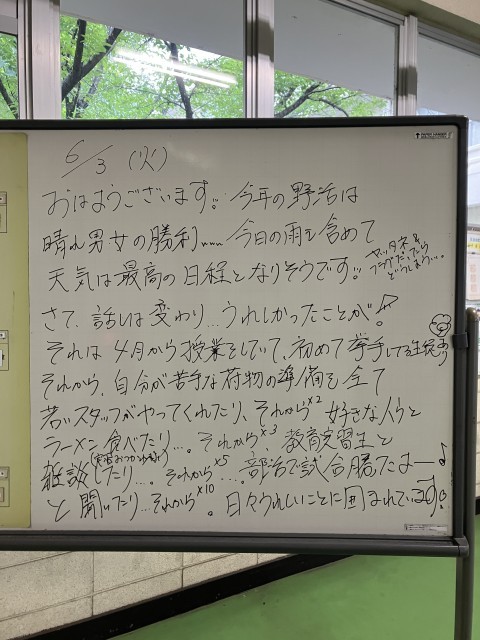 6/3 (火)
おはようございます。今年の野活は
晴れ男女の勝利……今日の雨を含めて
天気は最高の日程となりそうです。
ヤッタネ&
どうしよう…。
さて、話しは変わり…うれしかったことが!
それは4月から授業をしていて、初めて挙手してる生徒あり
それから、自分が苦手な荷物の準備を全て
若いスタッフがやってくれたり、それから×2 好きな人らと
ラーメン食べたり…。それから×3、教育実習生と
雑談したり…。それから×5…。部活で試合勝ったよー♪
と聞いたり…それから×10。日々うれしいことに囲まれています。